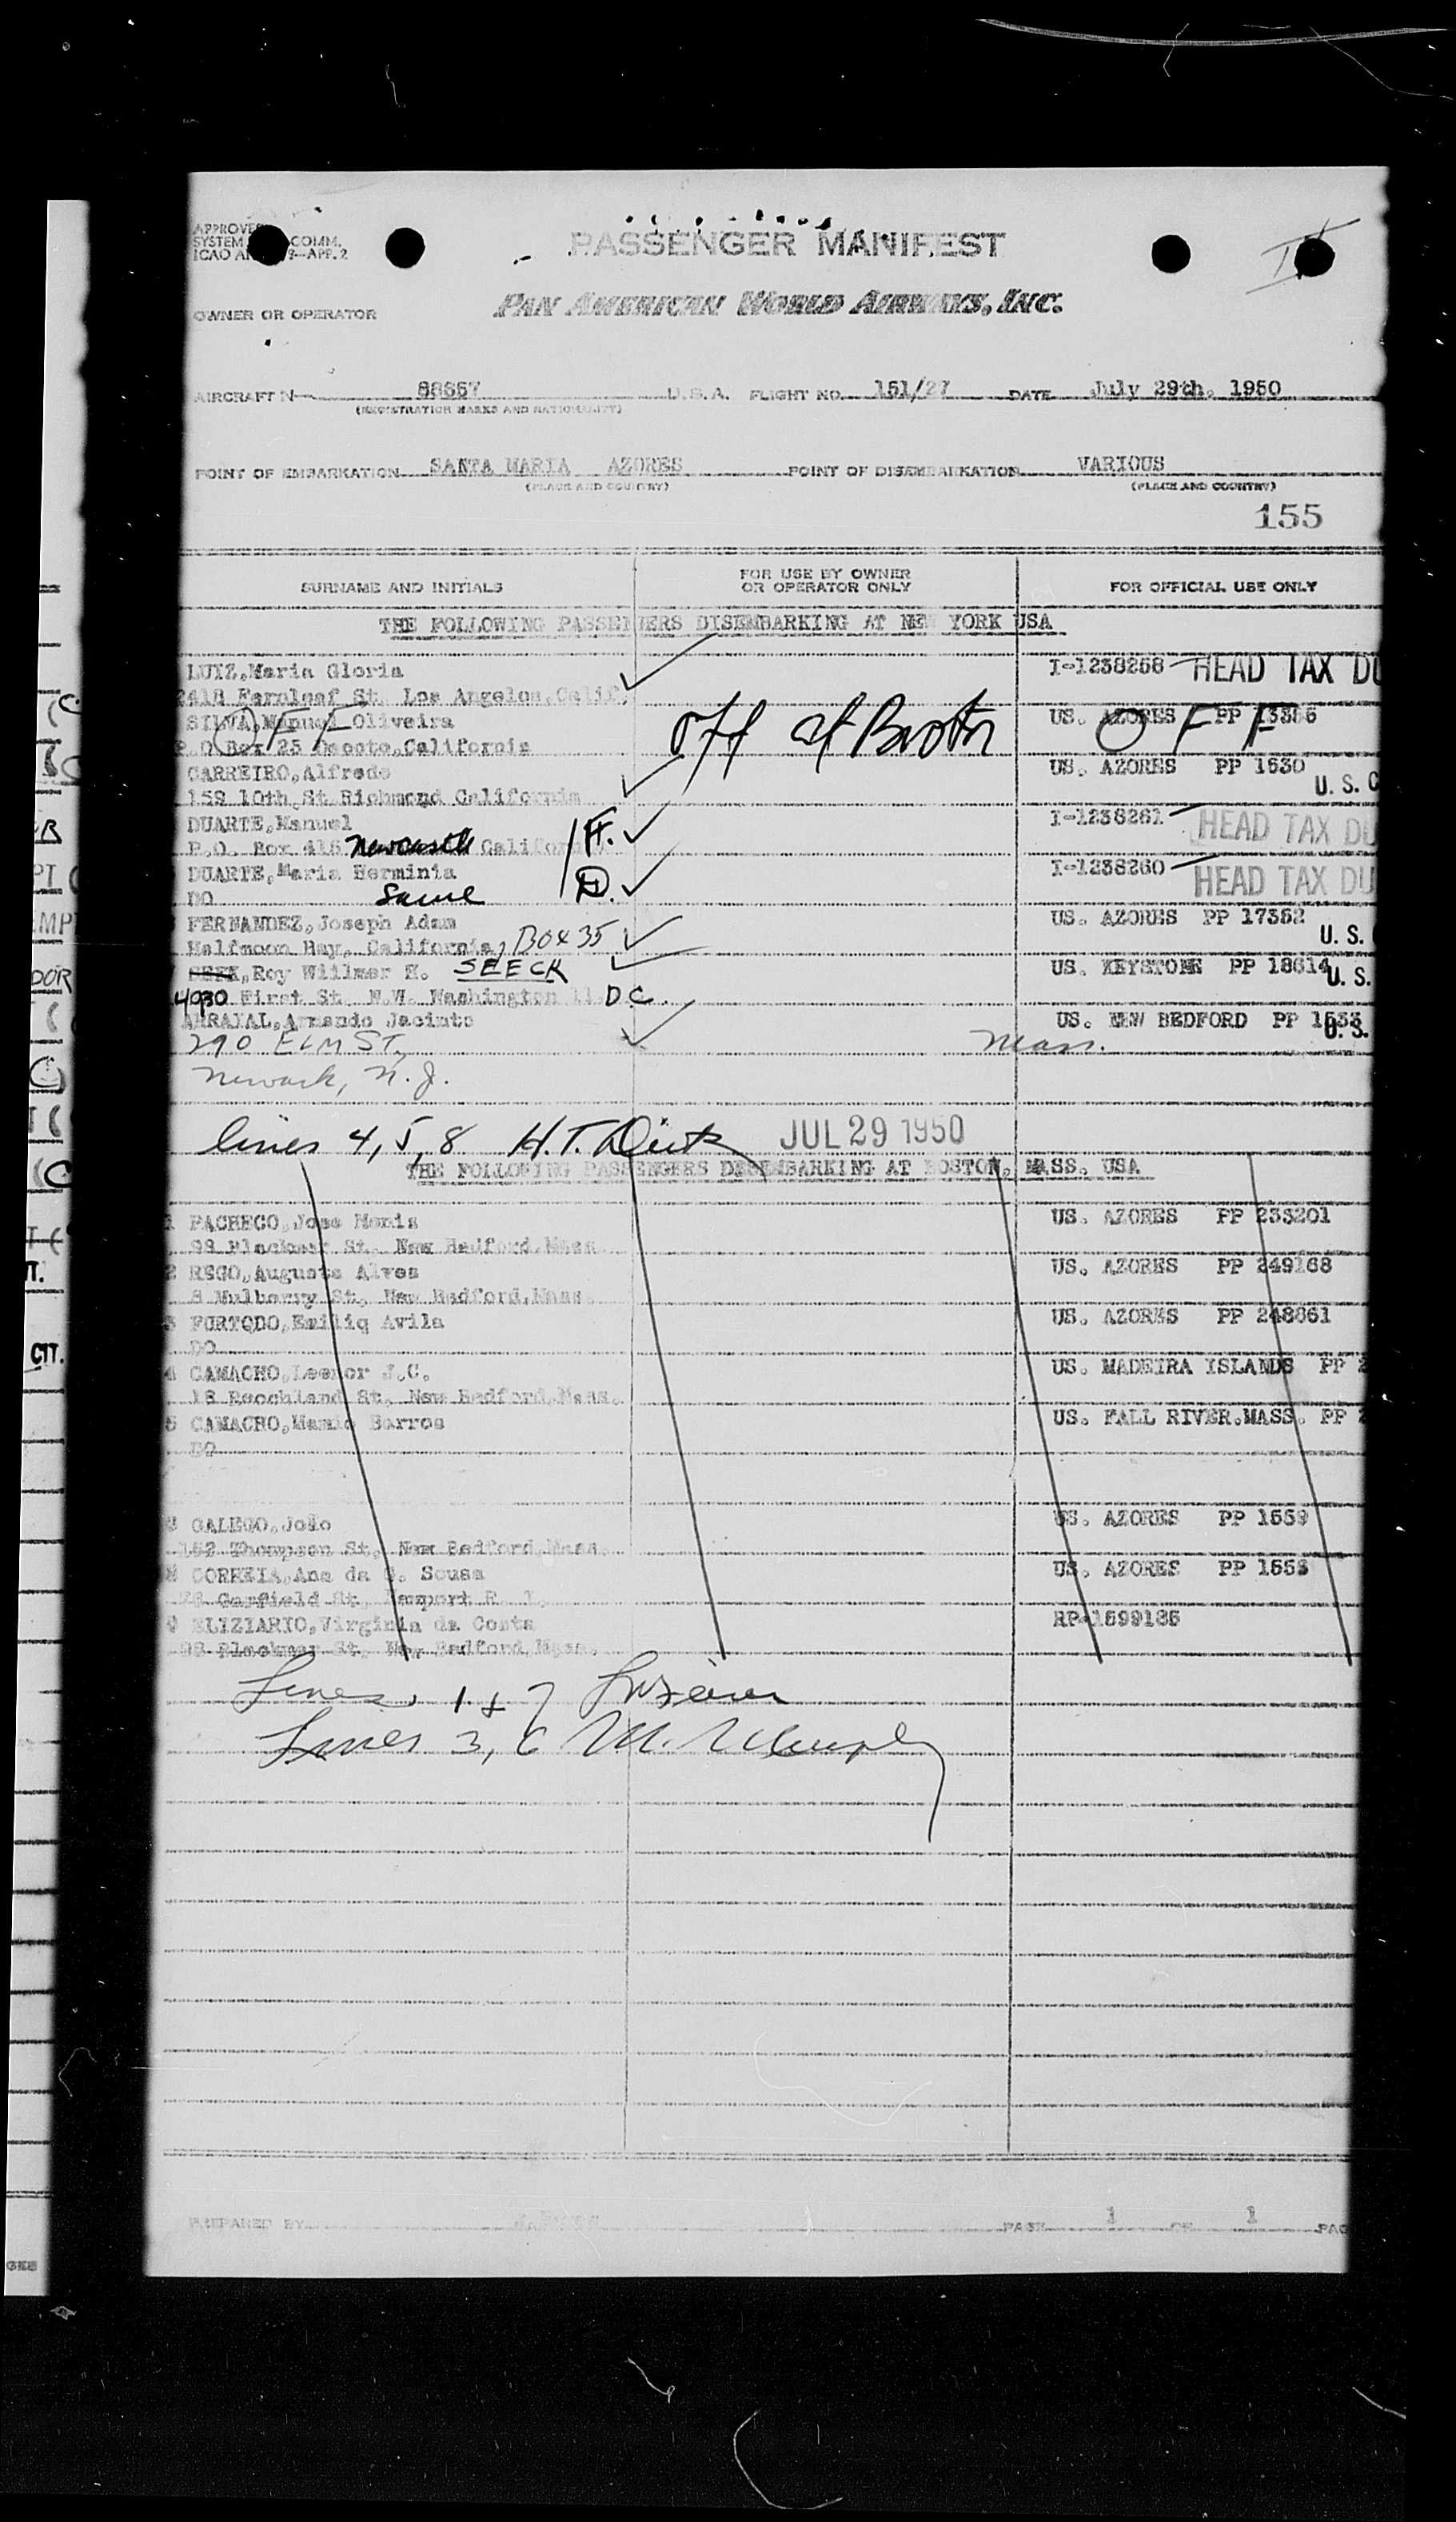 PASSENGER MANIFEST
PAN AMERICAN WORLD AIRWAYS, INC.
OWNER OR OPERATOR
AIRCRAFT N 88857 U.S.A. FLIGHT NO. 151/27 DATE July 29th, 1950
(REGISTRATION MARKS AND NATIONALITY)
POINT OF EMBARKATION SANTA MARIA AZORES POINT OF DISEMBARKATION VARIOUS
(PLACE AND COUNTRY) (PLACE AND COUNTRY)
155
SURNAME AND INITIALS FOR USE BY OWNER OR OPERATOR ONLY FOR OFFICIAL USE ONLY
THE FOLLOWING PASSENGERS DISEMBARKING AT NEW YORK USA
LUIZ,Maria Gloria I-1238258 HEAD TAX DU
2418 Fernleaf St. Los Angelos,Calif.
SILVA,Manuel Oliveira OFF off at Boston US. AZORES PP OFF
P.O Box 25 California
CARREIRO,Alfredo US. AZORES PP 1530
159 10th St Richmond California U. S. C
DUARTE,Manuel H. I-1238261 HEAD TAX DU
P.O. Box 415 Newcastle California
DUARTE,Maria Herminia I-1238260 HEAD TAX DU
DO Same D.
FERNANDEZ,Joseph Adam US. AZORES PP 17352
Halfmoon Bay, California, Box 35 U. S.
Roy Wilmer H. SEECK US. KEYSTONE PP 18614 U. S.
4930 First St. N.W. Washington D.C.
ARRAIAL,Armando Jacinto US. NEW BEDFORD PP U. S.
290 ELM ST, Mass.
Newark, N.J.
lines 4, 5, 8 H.T. JUL 29 1950
THE FOLLOWING PASSENGERS DISEMBARKING AT BOSTON, MASS. USA
1 PACHECO,Jose Monis US. AZORES PP 233201
99 Blackmer St. New Bedford,Mass
2 REGO,Augusto Alves US. AZORES PP 249168
8 Mulberry St, New Bedford,Mass.
3 FURTODO,Emiliq Avila US. AZORES PP 248861
DO
4 CAMACHO,Leenor J.C. US. MADEIRA ISLANDS PP 2
18 St. New Bedford,Mass.
5 CAMACHO,Maria Barros US. FALL RIVER.MASS. PP 2
DO
GALEGO,João US. AZORES PP 1559
162 Thompson St, New Bedford,Mass.
CORREIA,Ana da S. Sousa US. AZORES PP 1553
Garfield St, Newport R. I.
9 ELIZIARIO,Virginia da Costa RP-1599185
Blackmer St. New Bedford,Mass.
Lines 1 & 7
Lines 3, 6 M.
PREPARED BY PAGE 1 OF 1 PAG